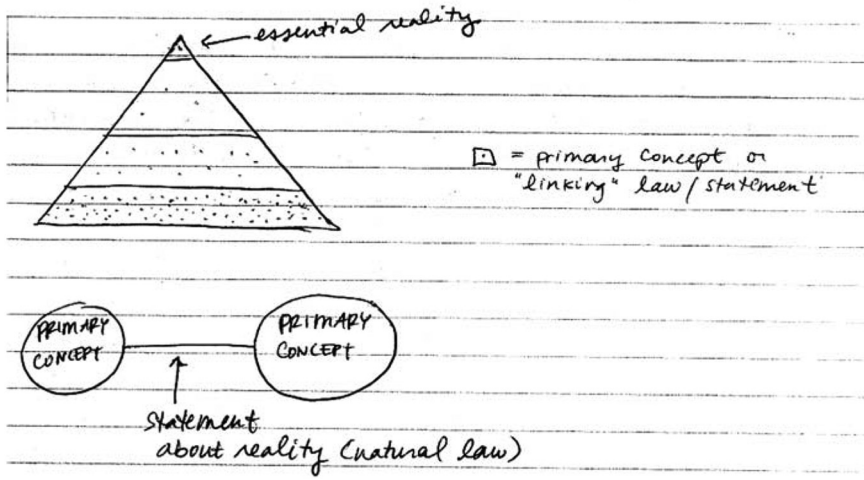 essential reality
⊡ = primary concept or
"linking" law/statement
PRIMARY
CONCEPT
PRIMARY
CONCEPT
statement
about reality (natural law)